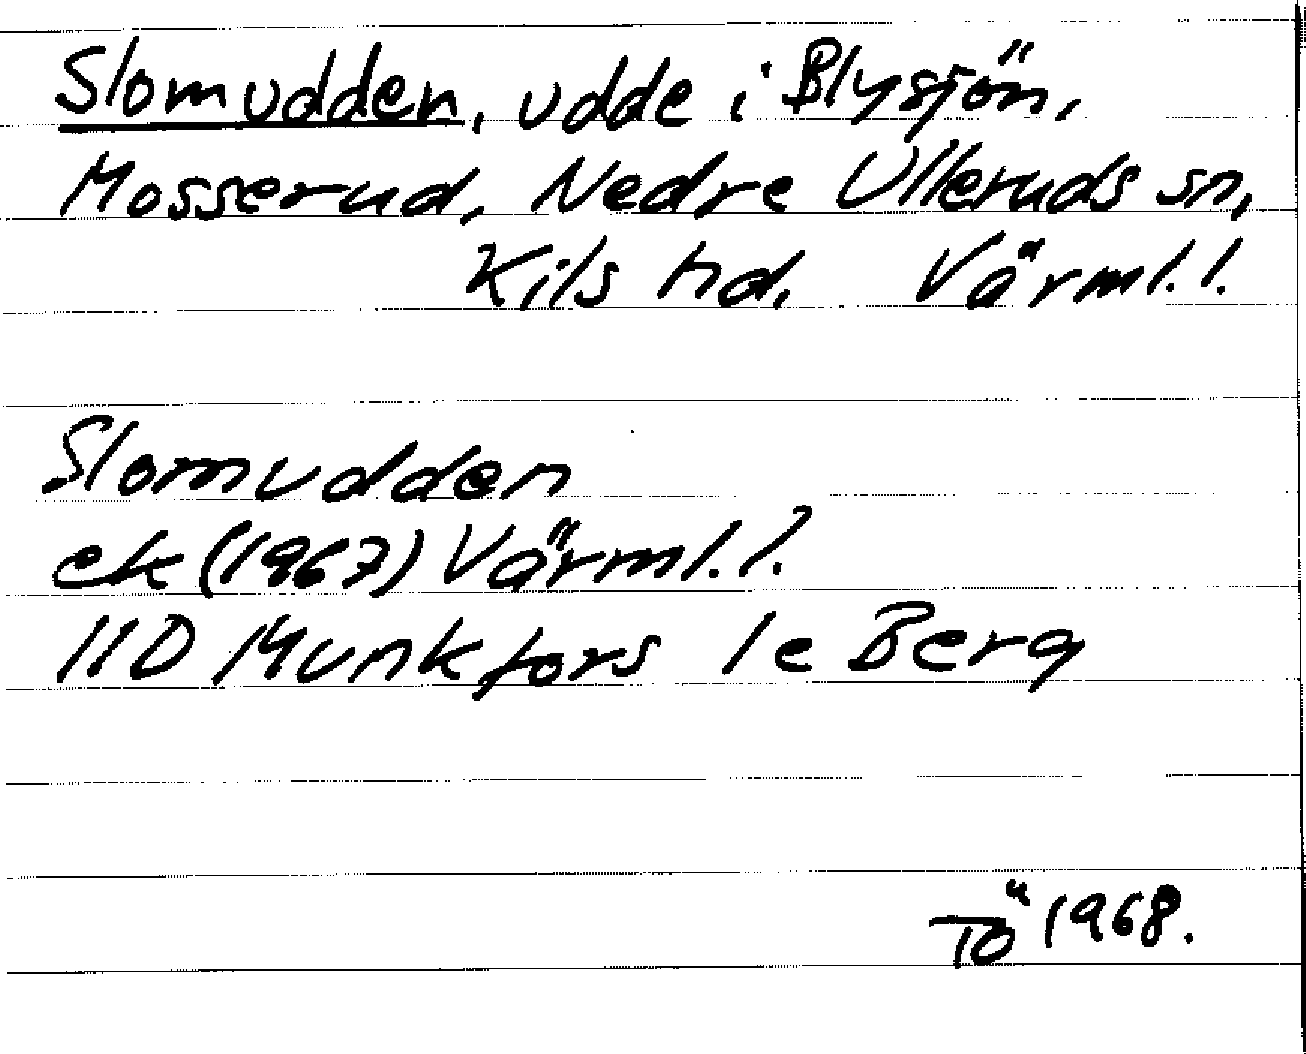 Slomudden, udde i Blysjön,
Mosserud, Nedre Ulleruds sn,
Kils hd. Värml. l.
Slomudden
ek (1967) Värml. l.
11D Munkfors 1e Berg
TÖ 1968.